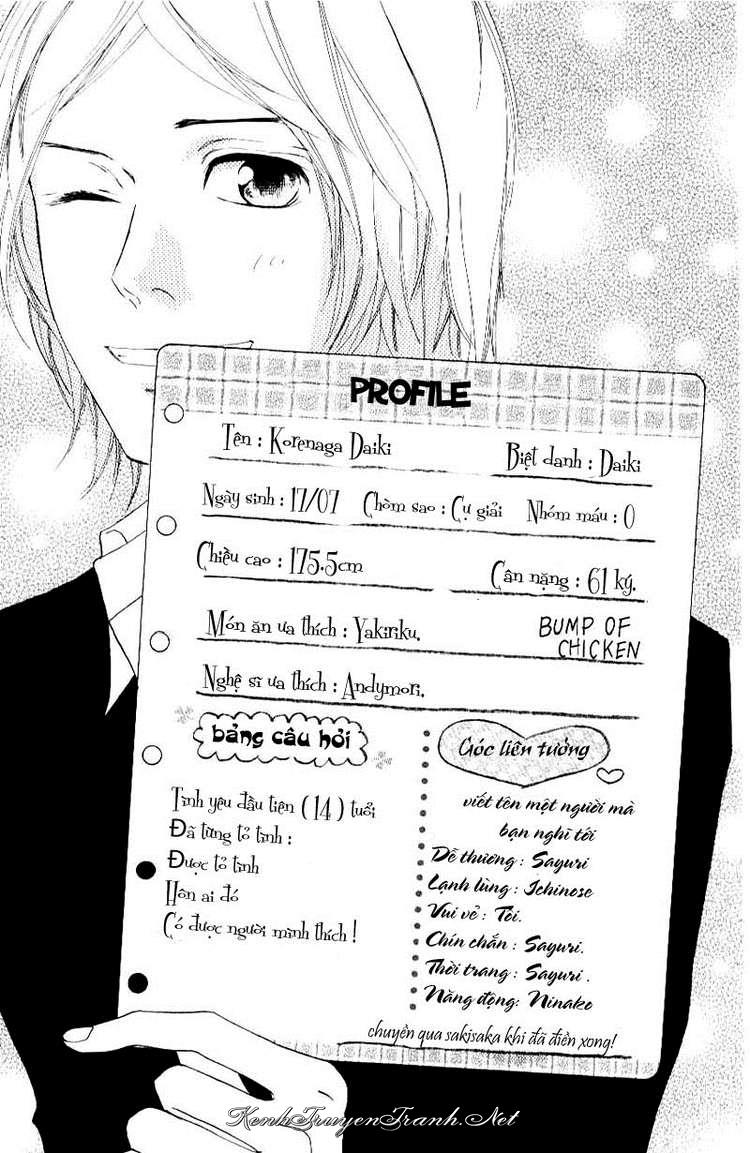 PROFILE
Tên : Korenaga Daiki Biệt danh : Daiki
Ngày sinh : 17/07 Chòm sao : Cự giải Nhóm máu : O
Chiều cao : 175.5cm Cân nặng : 61 ký.
Món ăn ưa thích : Yakiriku. BUMP OF CHICKEN
Nghệ sĩ ưa thích : Andymori.
bảng câu hỏi
Tình yêu đầu tiên ( 14 ) tuổi
Đã từng tỏ tình :
Được tỏ tình
Hôn ai đó
Có được người mình thích !
Góc liên tưởng
viết tên một người mà
bạn nghĩ tới
Dễ thương : Sayuri
Lạnh lùng : Ichinose
Vui vẻ : Tôi.
Chín chắn : Sayuri.
Thời trang : Sayuri .
Năng động: Ninako
chuyền qua sakisaka khi đã điền xong!
KenhTruyenTranh.Net